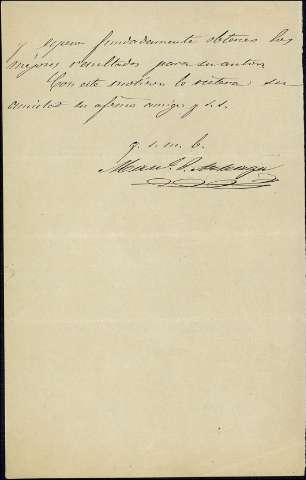 y espero fundadamente obtener los
mejores resultados para su autor.
Con este motivo le reitera su
amistad su afmo amigo y s.s.
q. s. m. b.
Manl. P.